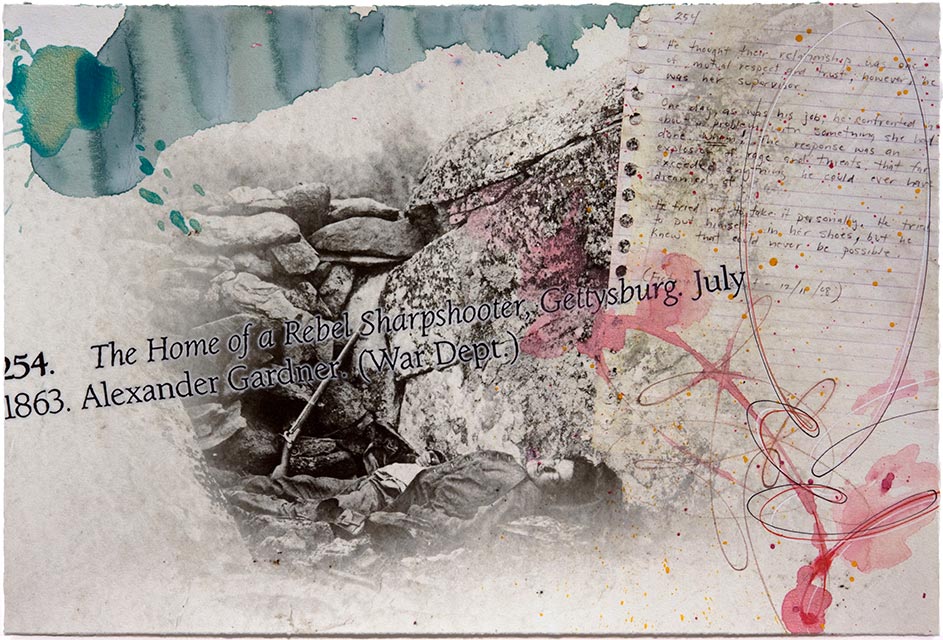 254
He thought their relationship was one
of mutual respect and trust, however, he
was her supervisor.
One day, as was his job, he confronted
about a problem with something she had
done wrong. The response was an
explosion of rage and threats that far
exceeded anything he could ever have
dreamed of.
He tried not to take it personally. He tried
to put himself in her shoes, but he
knew that could never be possible.
254. The Home of a Rebel Sharpshooter, Gettysburg. July
1863. Alexander Gardner. (War Dept.)